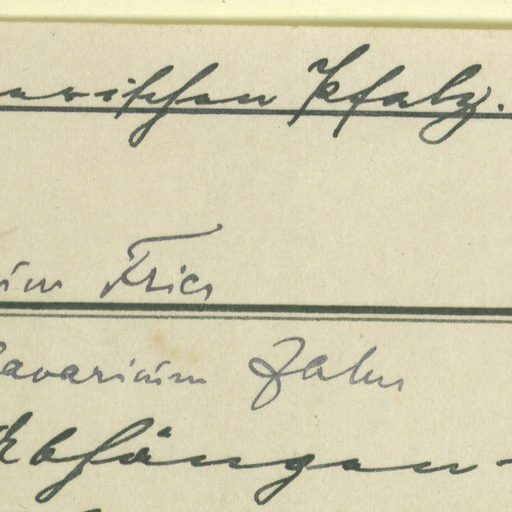 erischen Pfalz.
ium Fries
bavaricum Zahn
Abhängen-